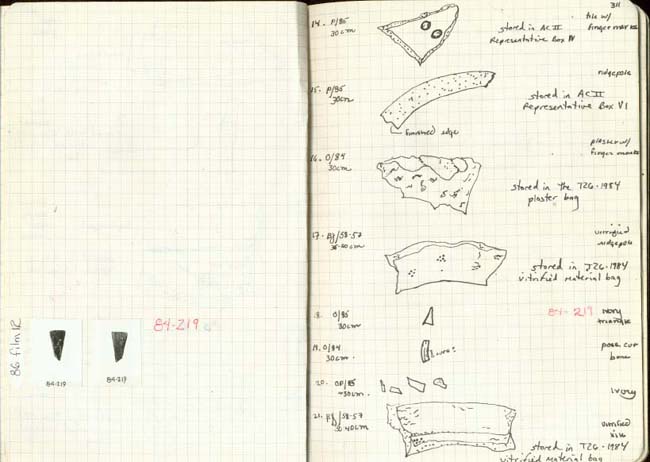 86 film 12
84-219
84-219
84-219
311
14. P/85
30cm
stored in AC II
Representative Box IV
tile w/
finger marks
15. P/85
30cm
finished edge
stored in AC II
Representative Box VI
ridgepole
16. O/84
30cm
stored in the T26-1984
plaster bag
plaster w/
finger marks
17.
/58-57
cm
stored in T26-1984
vitrified material bag
vitrified
ridgepole
18. O/85
30cm
84-219
ivory
triangle
19. O/84
30cm.
poss. cut
bone
20. OP/85
~30cm.
ivory
21.
/58-57
30-40cm
stored in T26-1984
vitrified material bag
vitrified